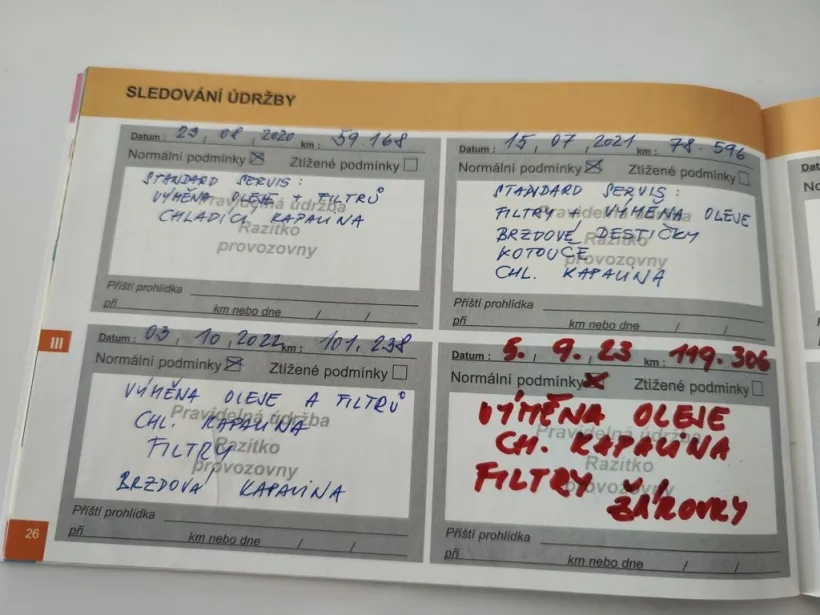 SLEDOVÁNÍ ÚDRŽBY
Datum : 23 , 08 , 2020 km : 59.168
Normální podmínky ☒ Ztížené podmínky ☐
STANDARD SERVIS :
VÝMĚNA OLEJE + FILTRŮ
CHLADÍCÍ KAPALINA
Pravidelná údržba
Razítko
provozovny
Příští prohlídka
při km nebo dne / /
Datum : 15 , 07 , 2021 km : 78.596
Normální podmínky ☒ Ztížené podmínky ☐
STANDARD SERVIS :
FILTRY + VÝMĚNA OLEJE
BRZDOVÉ DESTIČKY
KOTOUČE
CHL. KAPALINA
Pravidelná údržba
Razítko
provozovny
Příští prohlídka
při km nebo dne / /
III
Datum : 03 , 10 , 2022 km : 101.238
Normální podmínky ☒ Ztížené podmínky ☐
VÝMĚNA OLEJE A FILTRŮ
CHL. KAPALINA
FILTRY
BRZDOVÁ KAPALINA
Pravidelná údržba
Razítko
provozovny
Příští prohlídka
při km nebo dne / /
Datum : 5. , 9. , 23 km : 119.306
Normální podmínky ☒ Ztížené podmínky ☐
VÝMĚNA OLEJE
CH. KAPALINA
FILTRY
ŽÁROVKY
Pravidelná údržba
Razítko
provozovny
Příští prohlídka
při km nebo dne / /
26